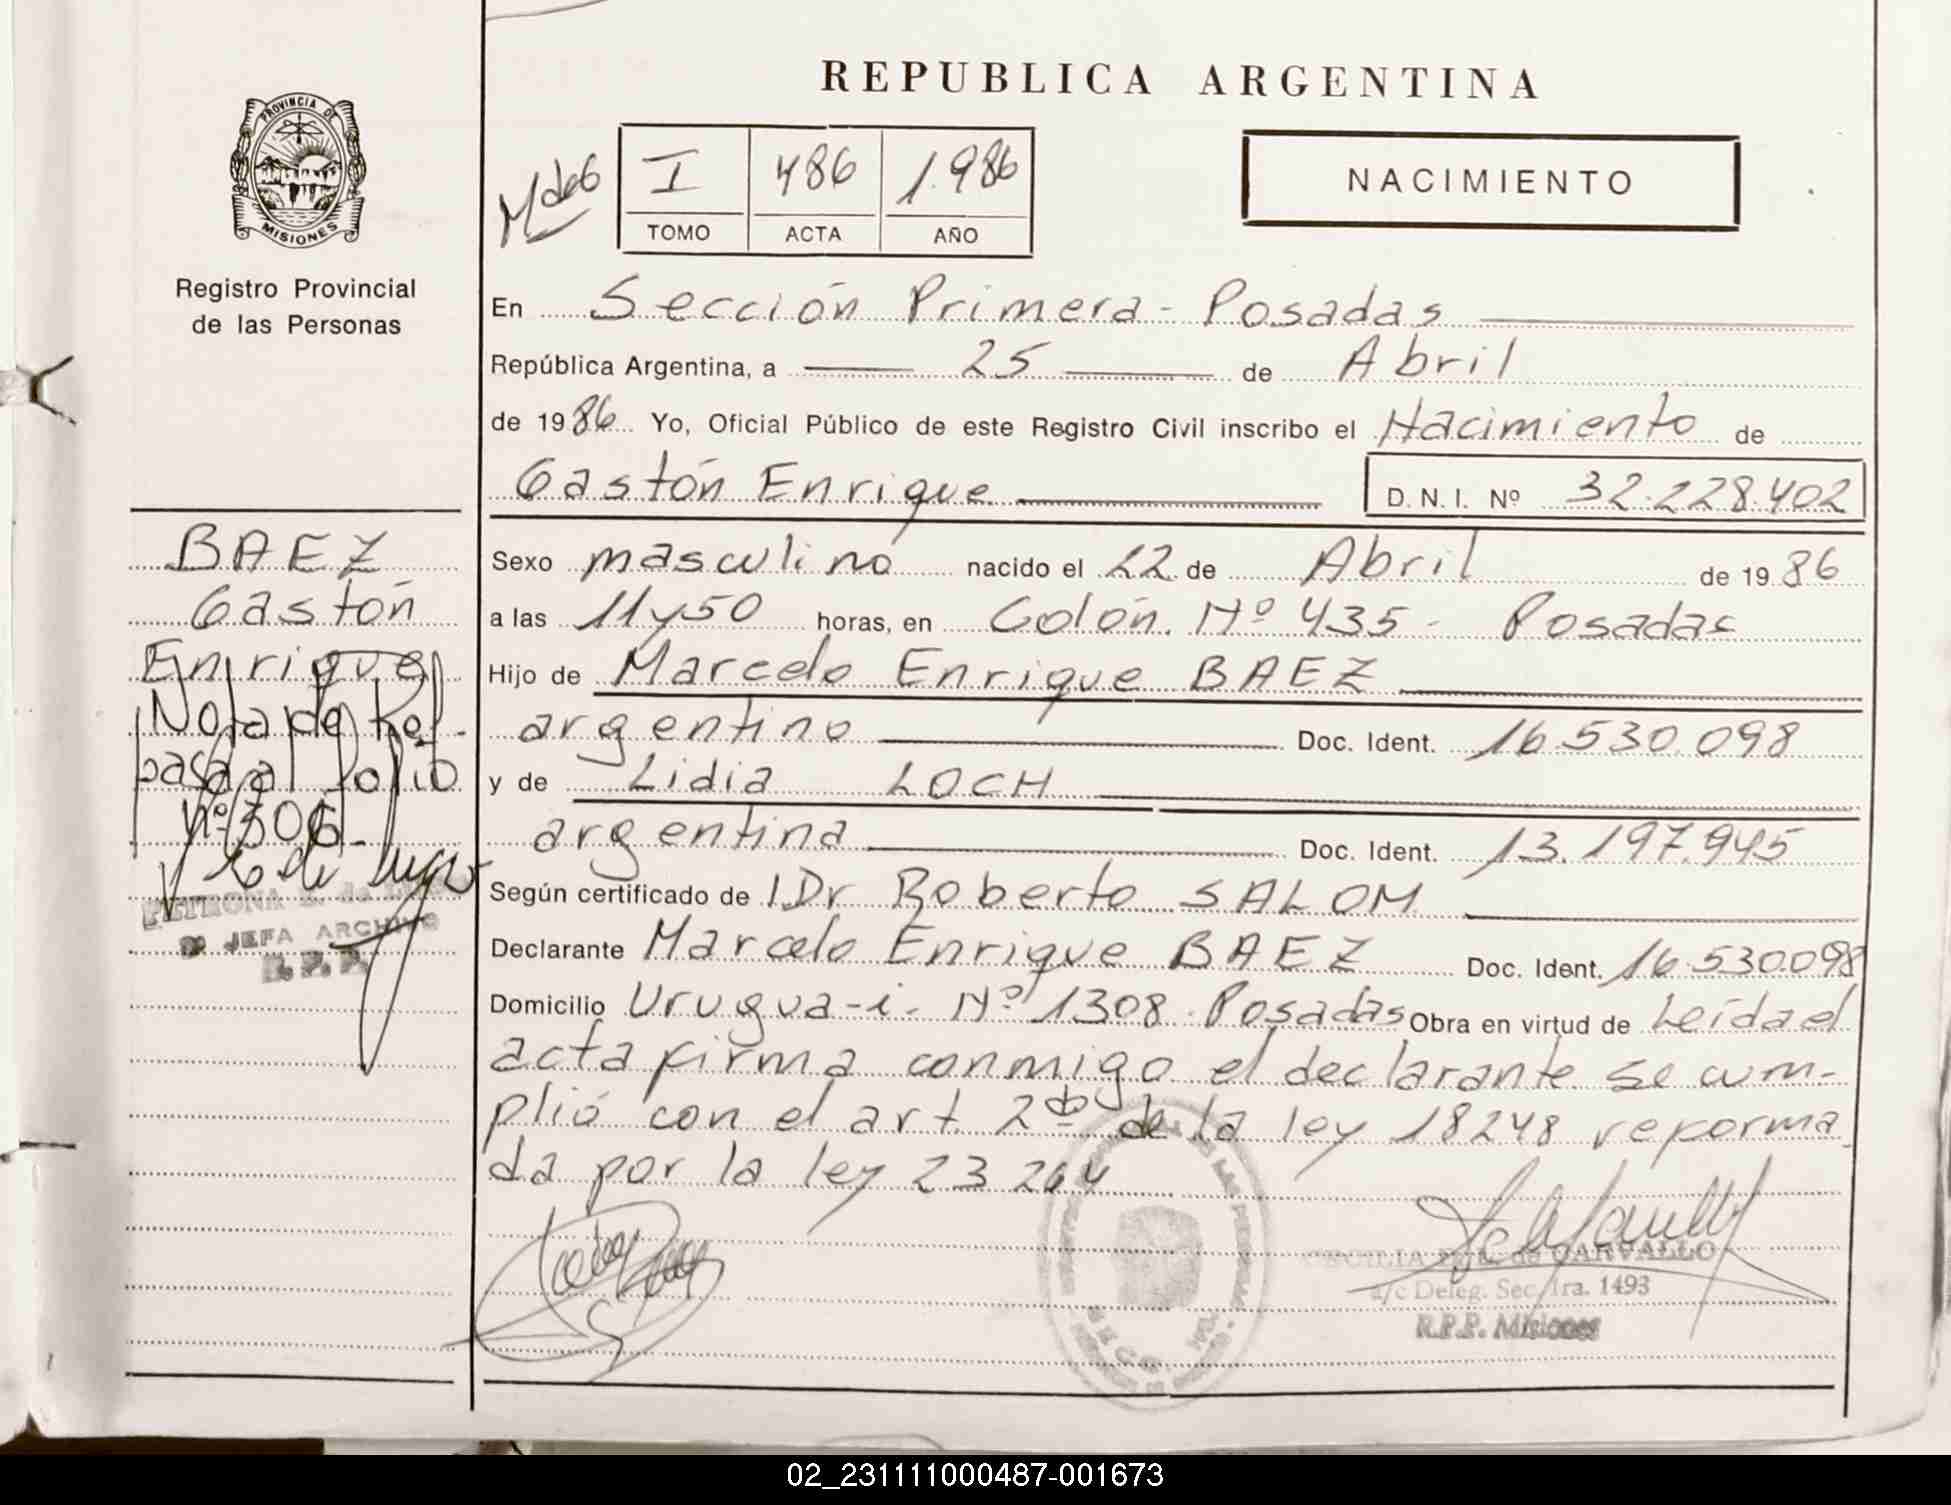 PROVINCIA DE
MISIONES
Registro Provincial
de las Personas
BAEZ
Gastón
Enrique
Nota de Ref.
pasa al folio
nº 306.
JEFA ARCHIVO
R. P. P.
REPUBLICA ARGENTINA
I 486 1.986
TOMO ACTA AÑO
NACIMIENTO
En Sección Primera - Posadas
República Argentina, a 25 de Abril
de 1986 Yo, Oficial Público de este Registro Civil inscribo el Nacimiento de
Gastón Enrique D. N. I. Nº 32.228.402
Sexo masculino nacido el 22 de Abril de 1986
a las 11 y 50 horas, en Colón. Nº 435 - Posadas
Hijo de Marcelo Enrique BAEZ
argentino Doc. Ident. 16.530.098
y de Lidia LOCH
argentina Doc. Ident. 13.197.945
Según certificado de l Dr Roberto SALOM
Declarante Marcelo Enrique BAEZ Doc. Ident. 16.530.098
Domicilio Urugua-i. Nº 1308. Posadas Obra en virtud de Leída el
acta firma conmigo el declarante se cum-
plió con el art 2do de la ley 18248 reforma
da por la ley 23 264
CECILIA de CARVALLO
a/c Deleg. Sec. 1ra. 1493
R.P.P. Misiones
02_231111000487-001673